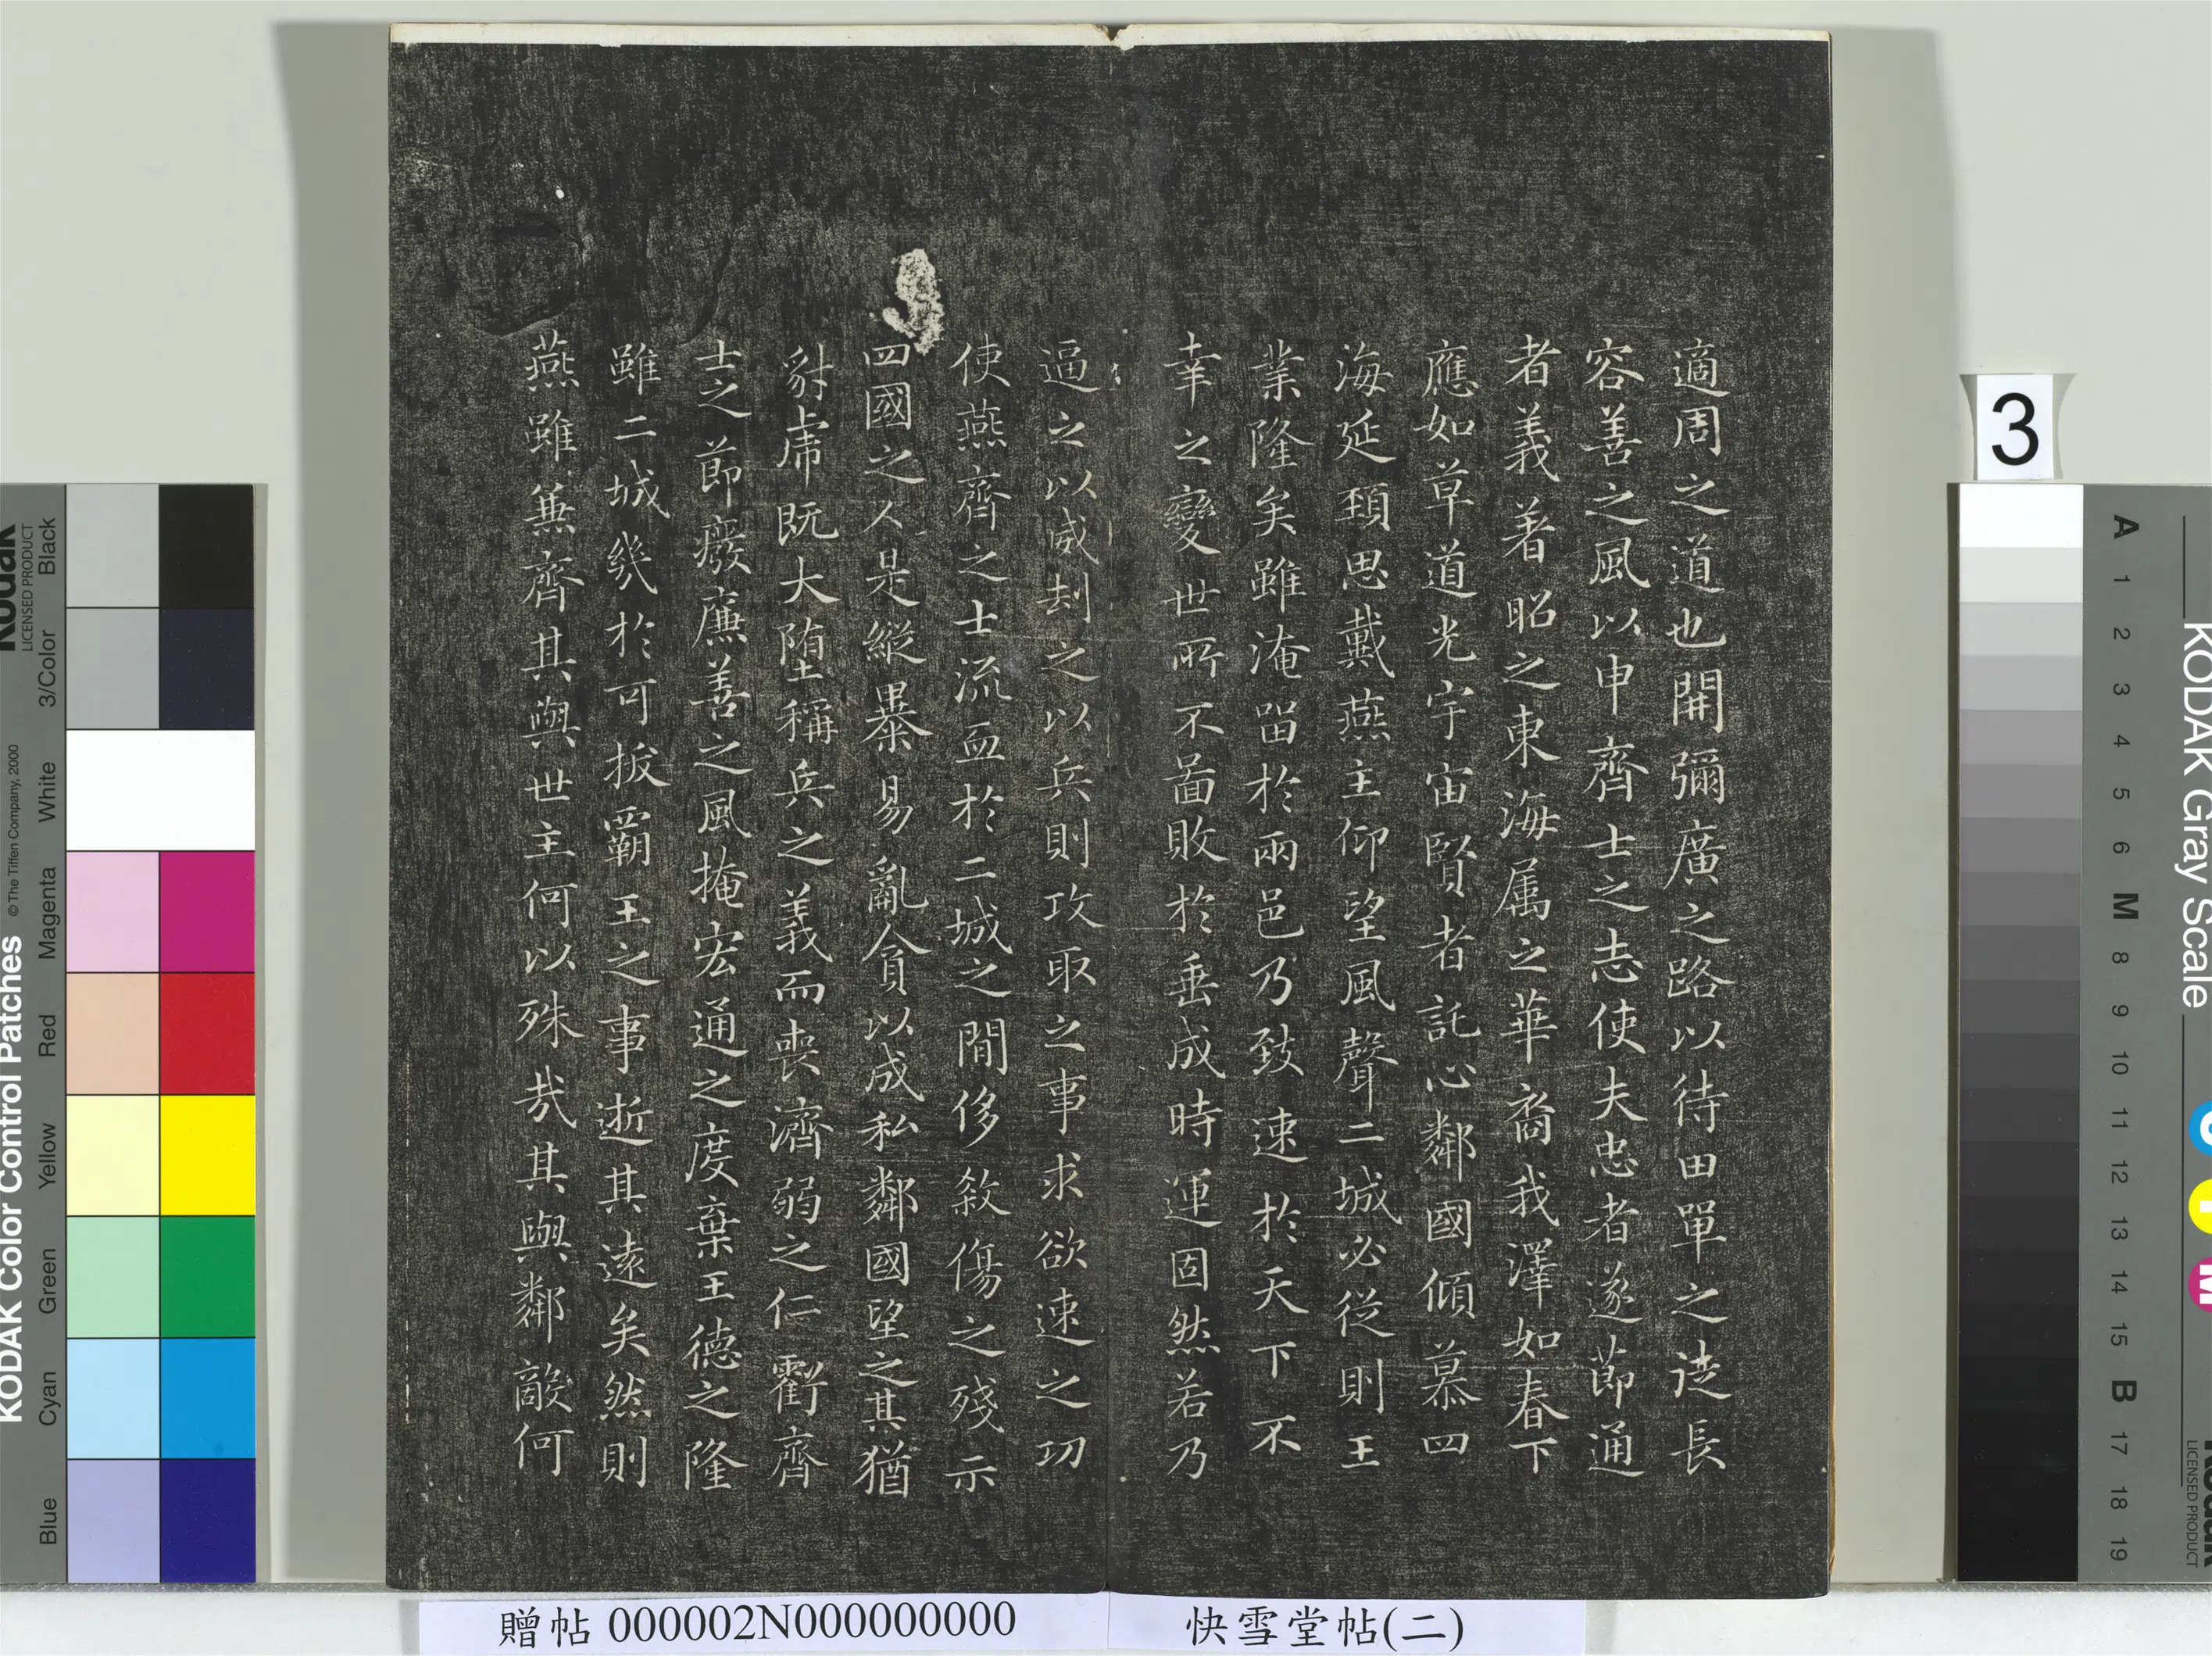 適周之道也開彌廣之路以待田單之徒長
容善之風以申齊士之志使夫忠者遂節通
者義著昭之東海属之華裔我澤如春下
應如草道光宇宙賢者託心鄰國傾慕四
海延頚思戴燕主仰望風聲二城必從則王
業隆矣雖淹留於兩邑乃致速於天下不
幸之變世所不啚敗於垂成時運固然若乃
逼之以威刦之以兵則攻取之事求欲速之功
使燕齊之士流血於二城之間侈煞傷之殘示
四國之人是縱暴易亂貪以成私鄰國望之其猶
豺虎既大堕稱兵之義而喪濟弱之仁虧齊
士之節癈廉善之風掩宏通之度棄王德之隆
雖二城幾於可拔霸王之事逝其遠矣然則
燕雖兼齊其與世主何以殊哉其與鄰敵何
贈帖 000002N000000000
快雪堂帖(二)
3
KODAK Color Control Patches
Kodak
LICENSED PRODUCT
© The Tiffen Company, 2000
Blue
Cyan
Green
Yellow
Red
Magenta
White
3/Color
Black
KODAK Gray Scale
LICENSED PRODUCT
A 1 2 3 4 5 6 M 8 9 10 11 12 13 14 15 B 17 18 19
C
Y
M